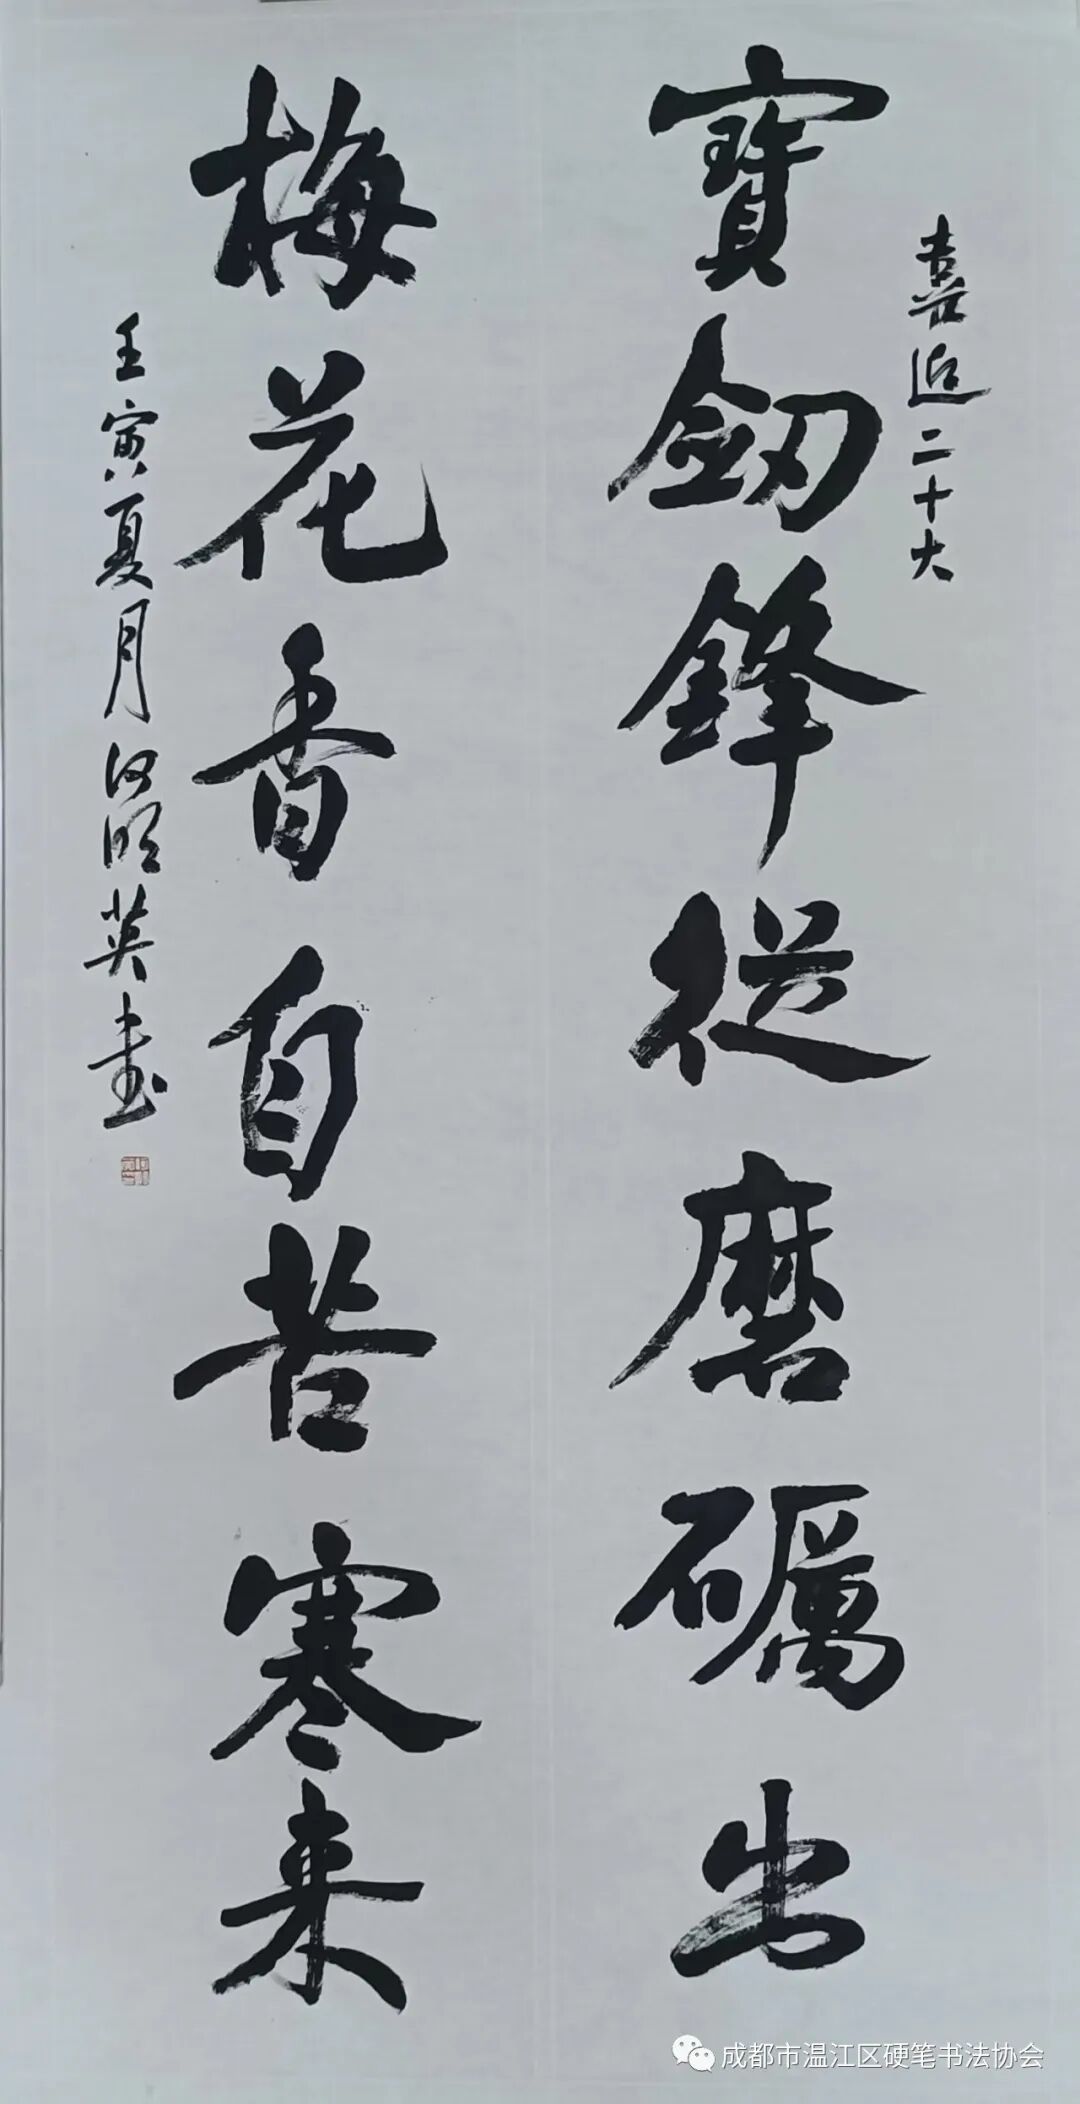 喜迎二十大
寶劒鋒從磨礪出
梅花香自苦寒来
壬寅夏月何英書
成都市温江区硬笔书法协会